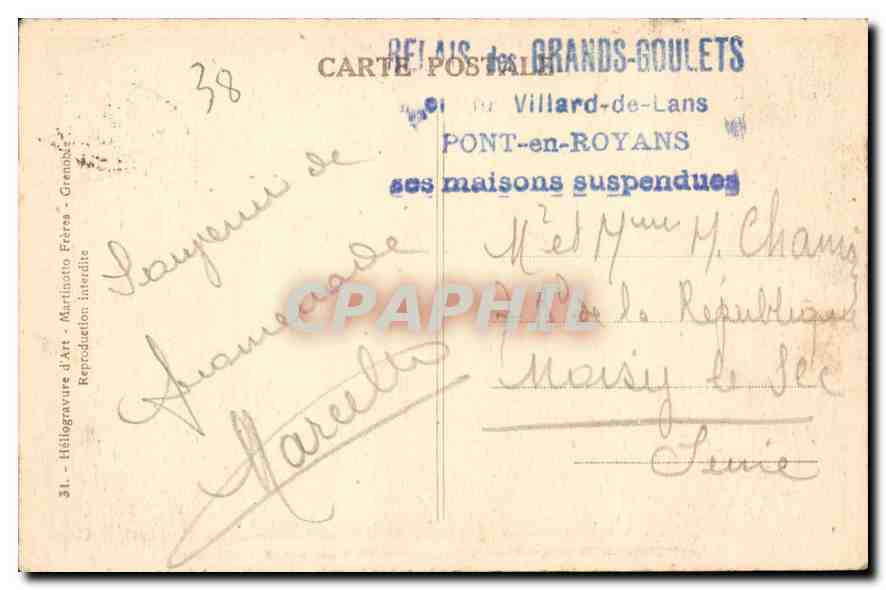 CARTE POSTALE
RELAIS des GRANDS-GOULETS
Villard-de-Lans
PONT-en-ROYANS
ses maisons suspendues
38
Souvenir de
promenade
Marcelle
Mr et Mme H. Chamic
de la République
Noisy le Sec
Seine
31. - Héliogravure d'Art - Martinotto Frères - Grenoble
Reproduction interdite
CPAPHIL